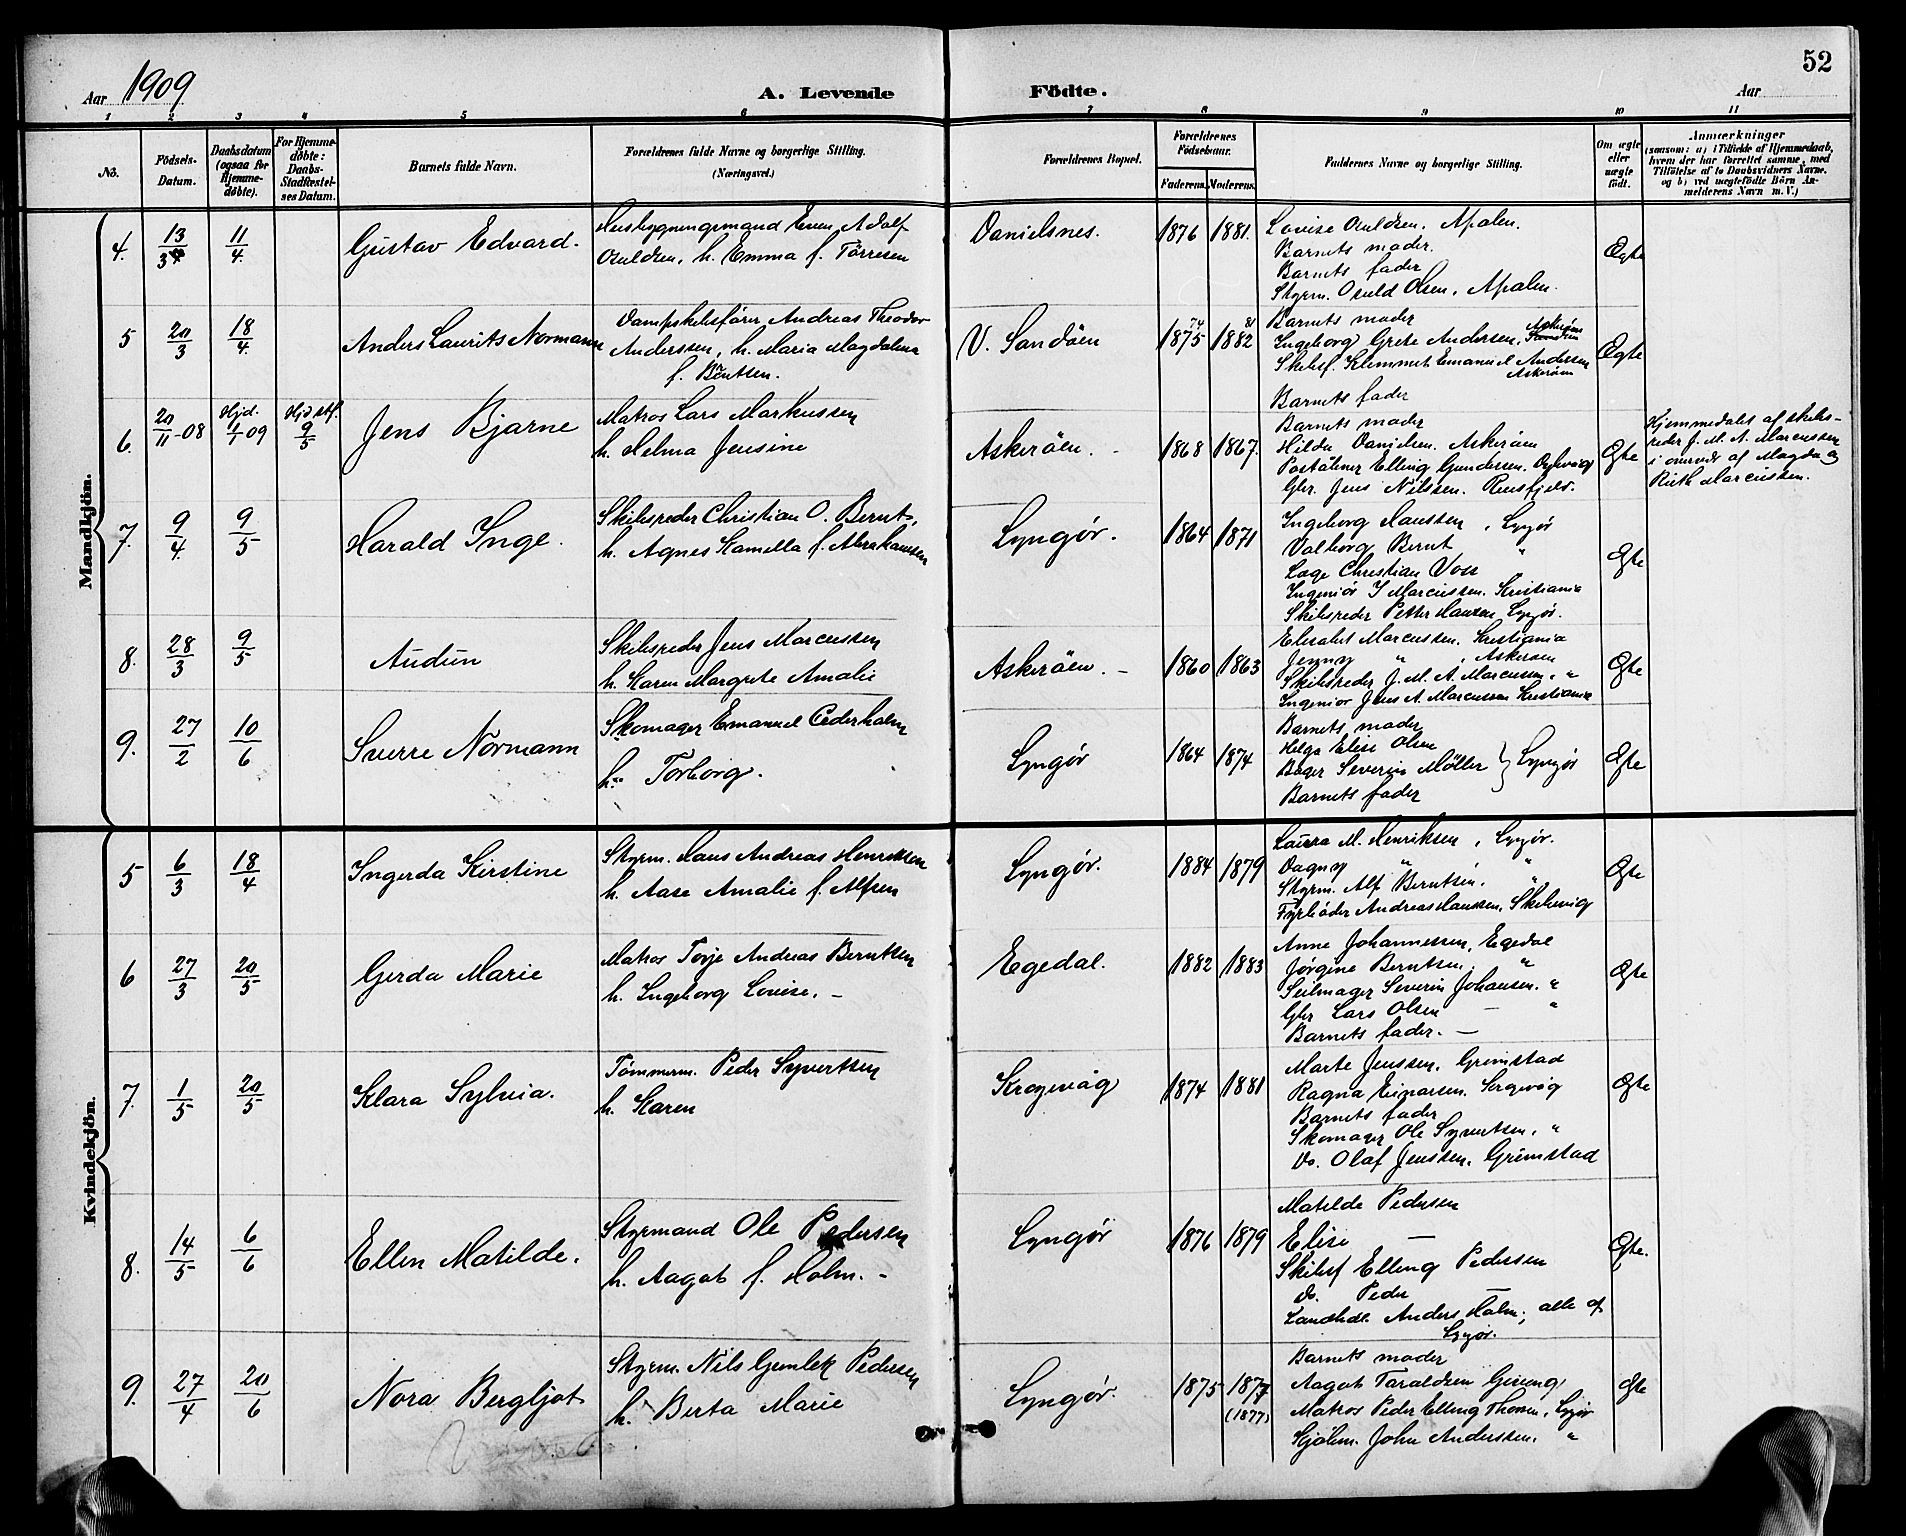 52
Aar 1909
A. Levende Födte.
Aar
1 2 3 4 5 6 7 8 9 10 11
No.
Födsels-Datum.
Daabsdatum (ogsaa for Hjemme-döbte).
For Hjemme-döbte: Daabs-Stadfæstel-ses Datum.
Barnets fulde Navn.
Forældrenes fulde Navne og borgerlige Stilling. (Næringsvei.)
Forældrenes Bopæl.
Forældrenes Födselsaar.
Faderens. Moderens.
Faddernes Navne og borgerlige Stilling.
Om ægte eller uægte födt.
Anmærkninger
(saasom: a) i Tilfælde af Hjemmedaab, hvem der har forrettet samme, med Tilföielse af to Daabsvidners Navne. og b) ved uægtefödte Börn An-melderens Navn m. V.)
Mandkjön.
4. 13/3 11/4. Gustav Edvard.
Husbygningsmand Even Adolf
Ouldsen, h. Emma f. Tørresen
Danielsnes. 1876 1881.
Lovise Ouldsen, Apalen.
Barnets moder.
Barnets fader
Styrm. Osuld Olsen, Apalen.
Ægte
5 20/3 18/4. Anders Laurits Normann
Dampskibsfører Andreas Theodor
Anderssen, h. Maria Magdalena
f. Berntsen.
V. Sandöen 74 1875 81 1882
Barnets moder
Ingeborg Grete Andersen, Askerøen
Skibsf. Klemmet Emanuel Anderssen
Askerøen
Barnets fader
Ægte
6. 20/11-08 Hjd. 1/1 09 Hjd stf. 9/5 Jens Bjarne
Matros Lars Markussen
h. Helma Jensine
Askerøen. 1868 1867.
Barnets moder
Hilda Danielsen, Askerøen
Poståbner Elling Gundersen.
Gbr. Jens Nilssen.
Ægte
Hjemmedøbt af skibs-
reder J. M. A. Marcussen
i overvær af Magda og
Ruth Marcussen.
7. 9/4 9/5 Harald Inge.
Skibsreder Christian O. Bernt,
h. Agnes Kamella f. Abrahamsen
Lyngør. 1864 1871
Ingeborg Hanssen, Lyngör
Valborg Bernt "
Læge Christian Voss
Ingeniör J Marcussen. Kristiania
Skibsreder Petter Hansen Lyngør.
Ægte
8. 28/3 9/5 Audun
Skibsreder Jens Marcussen
h. Karen Margrete Amalie
Askerøen. 1860 1863
Elisabet Marcussen. Kristiania
Jenny " , Askerøen
Skibsreder J. M. A. Marcussen, "
Ingeniör Jens A. Marcussen Kristiania
Ægte
9. 27/2 10/6 Sverre Normann
Skomager Emanuel Cederholm
h. Torborg.
Lyngør 1864 1874
Barnets moder
Helga Elise Olsen
Bager Severin Möller } Lyngör
Barnets fader
Ægte
Kvindekjön.
5 6/3 18/4 Ingerda Kirstine
Styrm. Hans Andreas Henriksen
h. Aase Amalie f. Alfsen
Lyngør. 1884 1879
Laura M. Henriksen, Lyngør.
Dagny " "
Styrm. Alf Berntsen. "
Fyrbøder Andreas Hanssen, Skibsvig
Ægte
6 27/3 20/5 Gerda Marie
Matros Torje Andreas Berntsen
h. Ingeborg Lovise. -
Egedal. 1882 1883
Anne Johannessen, Egedal
Jørgine Berntsen, "
Seilmager Severin Johansen. "
Gbr Lars Olsen — "
Barnets fader. —
Ægte
7. 1/5 20/5 Klara Sylvia.
Tømmerm. Peder Syvertsen
h. Karen
Krogevåg 1874 1881
Marte Jenssen, Grimstad
Ragna Einarsen.
Barnets fader
Skomager Ole Syvertsen, "
Do. Olaf Jenssen, Grimstad
Ægte
8. 14/5 6/6 Ellen Matilde.
Styrmand Ole Pedersen
h. Aagot f. Holm. -
Lyngør 1876 1879
Matilde Pedersen
Elise —
Skibsf Elling Pedersen
Do. Peder —
Anders Holm, alle af
Lyngør.
Ægte.
9. 27/4 20/6 Nora Bergljot
Styrm. Nils Gunlek Pedersen
h. Berta Marie
Lyngør. 1875 1877 (1877)
Barnets moder
Aagot Taraldsen Gjeving
Matros Peder Elling Thorsen, Lyngör
Sjöhm. John Anderssen. "
Ægte